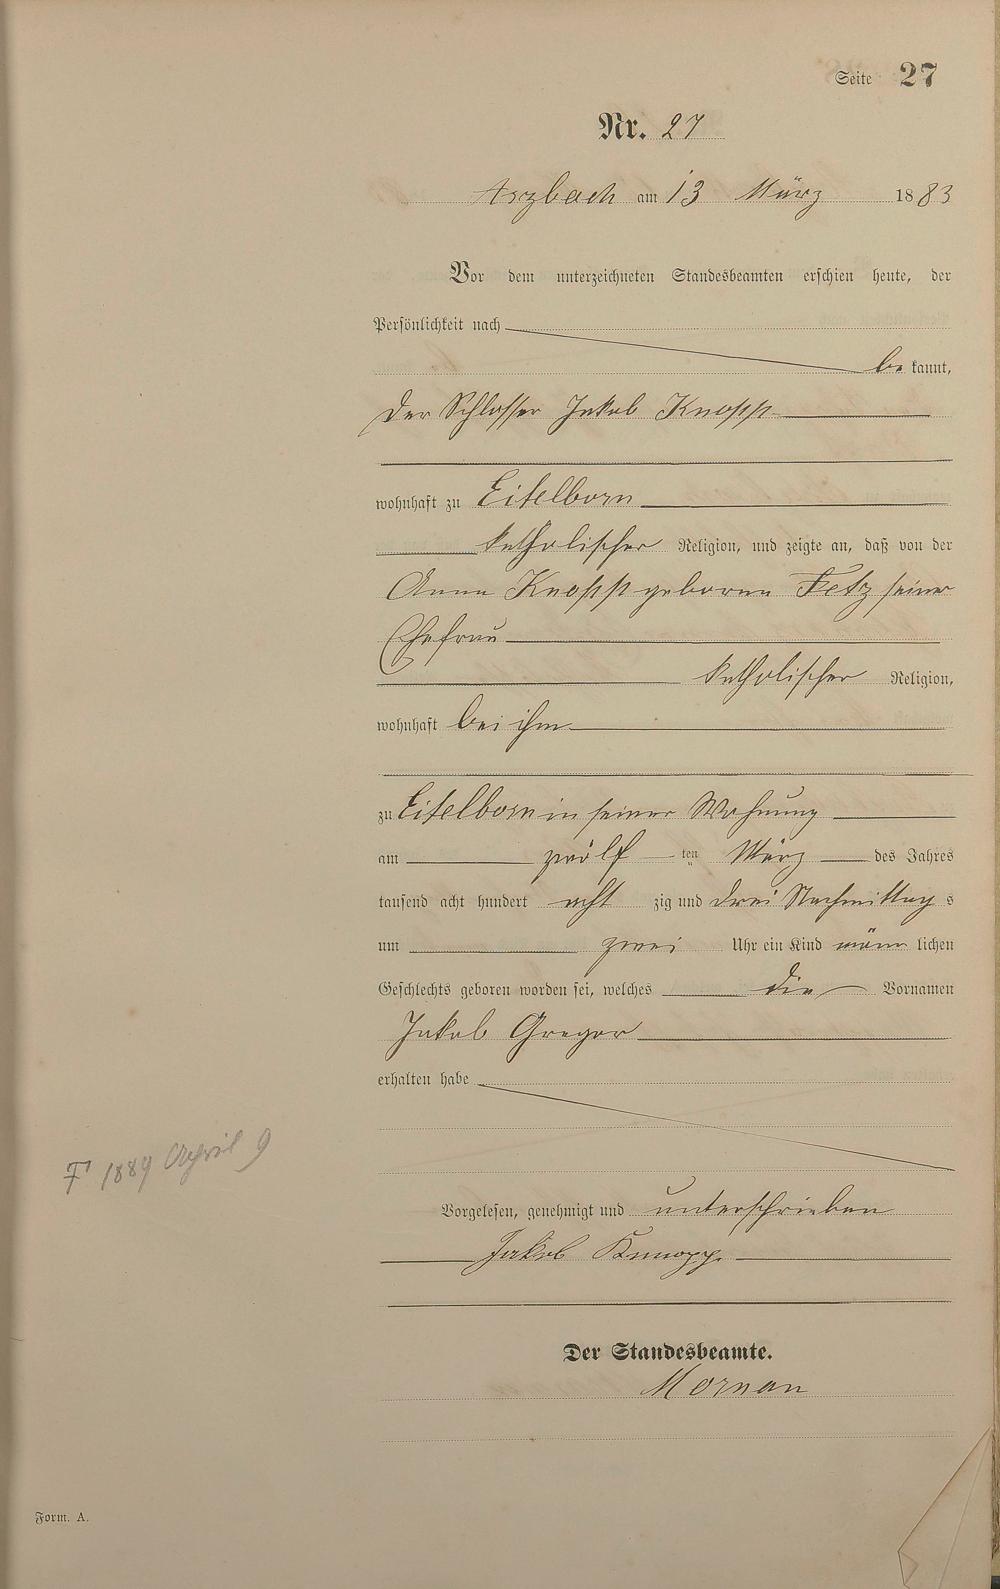 Seite 27
Nr. 27
Arzbach am 13 März 1883
Vor dem unterzeichneten Standesbeamten erschien heute, der
Persönlichkeit nach
bekannt,
der Schlosser Jakob Knopp
wohnhaft zu Eitelborn
katholischer Religion, und zeigte an, daß von der
Anna Knopp geborene Fetz seiner
Ehefrau
katholischer Religion,
wohnhaft bei ihm
zu Eitelborn in seiner Wohnung
am zwölf ten März des Jahres
tausend acht hundert acht zig und drei Nachmittags
um zwei Uhr ein Kind männlichen
Geschlechts geboren worden sei, welches die Vornamen
Jakob Gregor
erhalten habe
1889 April 9
Vorgelesen, genehmigt und unterschrieben
Jakob Knopp
Der Standesbeamte.
Form. A.